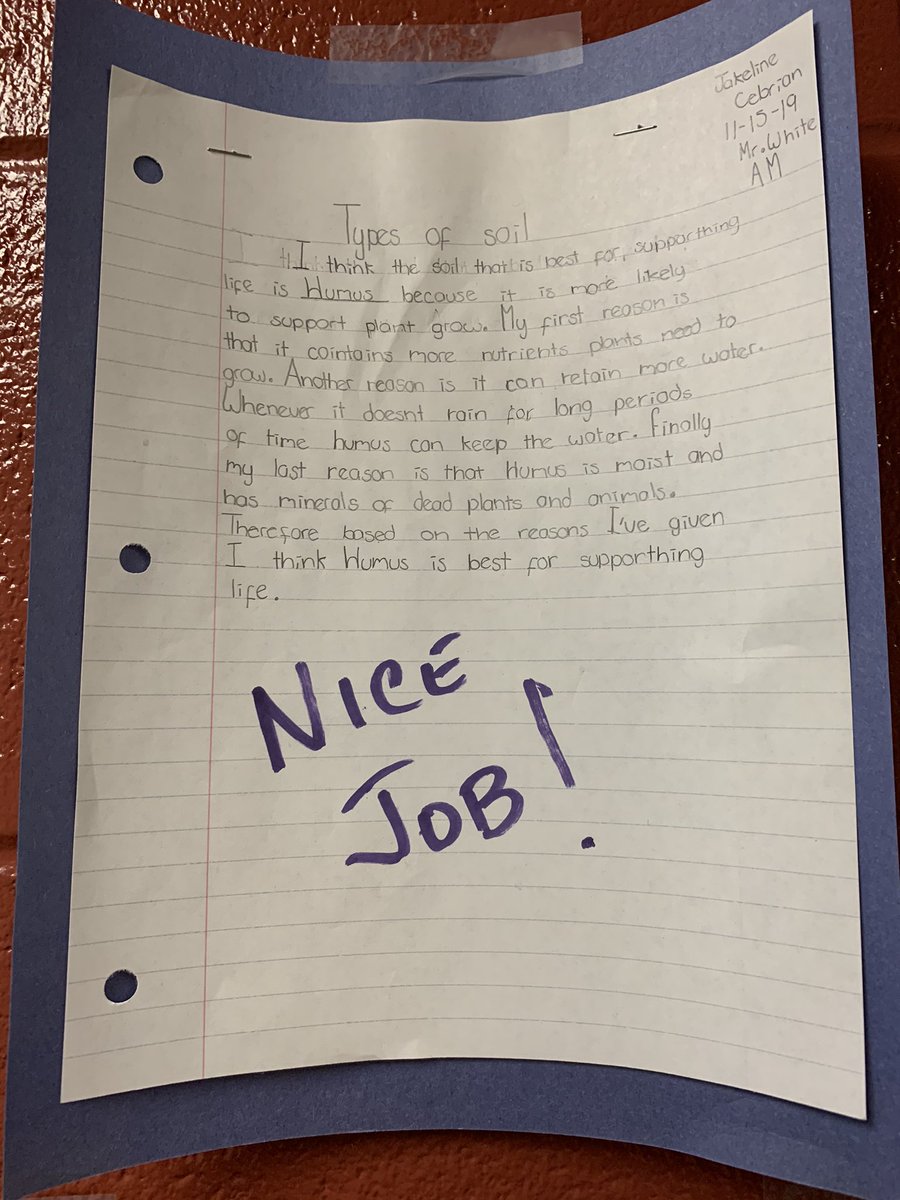 Jakeline
Cebrian
11-15-19
Mr. White
AM
Types of soil
I think the soil that is best for supporthing
life is Humus because it is more likely
to support plant grow. My first reason is
that it cointains more nutrients plants need to
grow. Another reason is it can retain more water.
Whenever it doesnt rain for long periods
of time humus can keep the water. Finally
my last reason is that Humus is moist and
has minerals of dead plants and animals.
Therefore based on the reasons I've given
I think Humus is best for supporthing
life.
NICE
JOB!